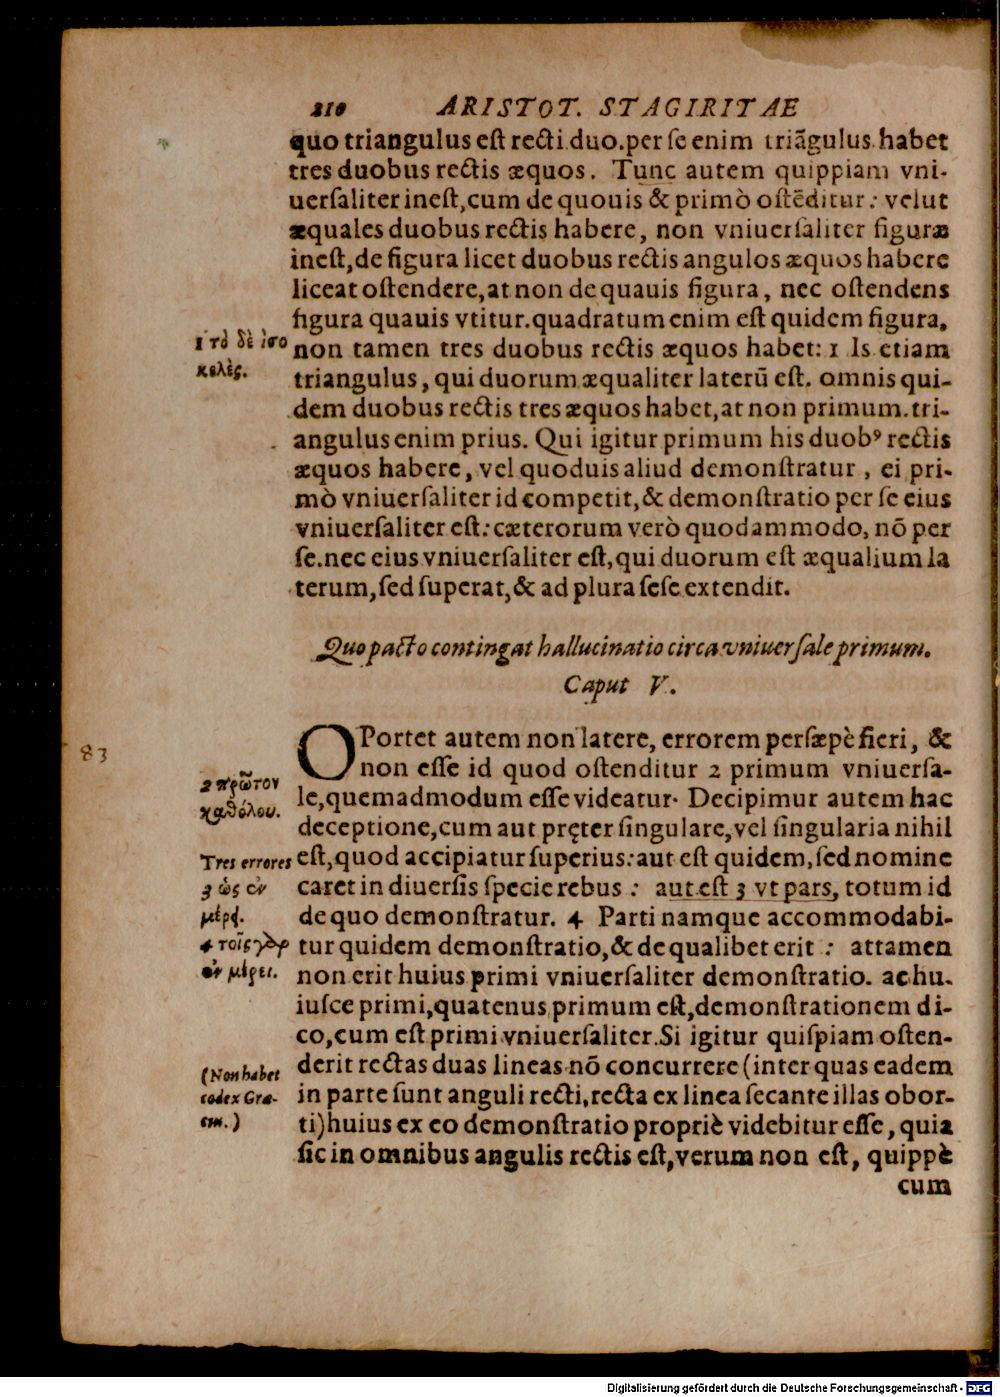 210 ARISTOT. STAGIRITAE
quo triangulus est recti duo. per se enim triãgulus habet
tres duobus rectis æquos. Tunc autem quippiam vni-
uersaliter inest, cum de quouis & primò ostẽditur: velut
æquales duobus rectis habere, non vniuersaliter figuræ
inest, de figura licet duobus rectis angulos æquos habere
liceat ostendere, at non de quauis figura, nec ostendens
figura quauis vtitur. quadratum enim est quidem figura,
non tamen tres duobus rectis æquos habet: 1 Is etiam
triangulus, qui duorum æqualiter laterũ est. omnis qui-
dem duobus rectis tres æquos habet, at non primum. tri-
angulus enim prius. Qui igitur primum his duobꝰ rectis
æquos habere, vel quoduis aliud demonstratur, ei pri-
mò vniuersaliter id competit, & demonstratio per se eius
vniuersaliter est: cæterorum verò quodammodo, nõ per
se. nec eius vniuersaliter est, qui duorum est æqualium la
terum, sed superat, & ad plura sese extendit.
1 τὸ δὲ ἰσο
κελὲς.
Quo pacto contingat hallucinatio circa vniuersale primum.
Caput V.
OPortet autem non latere, errorem persæpè fieri, &
non esse id quod ostenditur 2 primum vniuersa-
le, quemadmodum esse videatur. Decipimur autem hac
deceptione, cum aut pręter singulare, vel singularia nihil
est, quod accipiatur superius: aut est quidem, sed nomine
caret in diuersis specie rebus: aut est 3 vt pars, totum id
de quo demonstratur. 4 Parti namque accommodabi-
tur quidem demonstratio, & de qualibet erit: attamen
non erit huius primi vniuersaliter demonstratio. ac hu-
iusce primi, quatenus primum est, demonstrationem di-
co, cum est primi vniuersaliter. Si igitur quispiam osten-
derit rectas duas lineas nõ concurrere (inter quas eadem
in parte sunt anguli recti, recta ex linea secante illas obor-
ti) huius ex eo demonstratio propriè videbitur esse, quia
sic in omnibus angulis rectis est, verum non est, quippè
cum
83
2 πρῶτον
καθόλου.
Tres errores
3 ὡς ἐν
μέρει.
4 τοῖς γὰρ
ἐν μέρει.
(Non habet
codex Græ-
cus.)
Digitalisierung gefördert durch die Deutsche Forschungsgemeinschaft - DFG